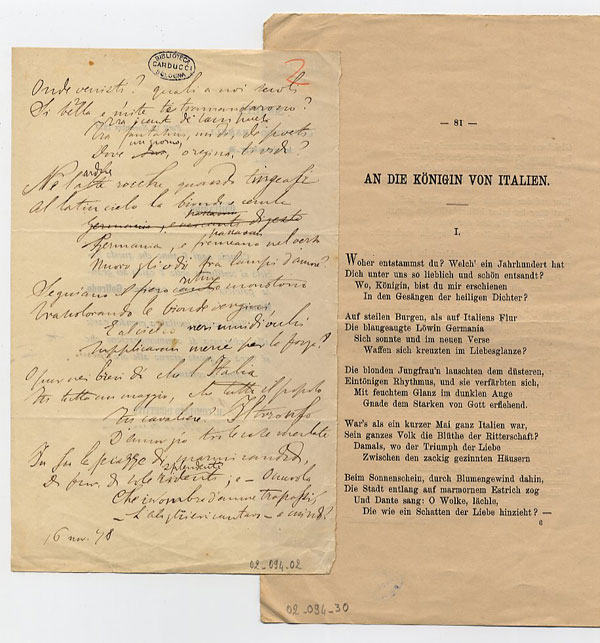 BIBLIOTECA
CARDUCCI
BOLOGNA
2
Onde venisti? quali a noi secoli
Si bella e mite te tramandarono?
Dove un giorno, o regina, ti vidi?
Ne le ardue rocche, quando tingeasi
Al latin cielo la bionda e cerula
Germania, e
Germania, e fremeano nel verso
Nuovo gli odi tra lampi d'amore?
Seguiano il monotono
Trascolorando le bionde vergini,
E al cielo neri umidi occhi
Supplicavan mercè per la forza?
O pur nei brevi dì che l'Italia
Fu tutta un maggio, che tutto il popolo
Fu cavaliere? Il trionfo
D'amor gia tra le case merlate
In su le piazze di marmi candidi,
Di fior, di sole splendenti; e — O nuvola
Che in ombra d'amor trapassi,
— L'Alighieri cantava — e
16 nov. 78
02-094-02
— 81 —
AN DIE KÖNIGIN VON ITALIEN.
I.
Woher entstammst du? Welch' ein Jahrhundert hat
Dich unter uns so lieblich und schön entsandt?
Wo, Königin, bist du mir erschienen
In den Gesängen der heiligen Dichter?
Auf steilen Burgen, als auf Italiens Flur
Die blaugeaugte Löwin Germania
Sich sonnte und im neuen Verse
Waffen sich kreuzten im Liebesglanze?
Die blonden Jungfrau'n lauschten dem düsteren,
Eintönigen Rhythmus, und sie verfärbten sich,
Mit feuchtem Glanz im dunklen Auge
Gnade dem Starken von Gott erflehend.
War's als ein kurzer Mai ganz Italien war,
Sein ganzes Volk die Blüthe der Ritterschaft?
Damals, wo der Triumph der Liebe
Zwischen den zackig gezinnten Häusern
Beim Sonnenschein, durch Blumengewind dahin,
Die Stadt entlang auf marmornem Estrich zog
Und Dante sang: O Wolke, Holde,
Die wie ein Schatten der Liebe hinzieht? —
6
02-094-30